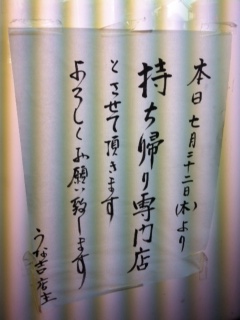 本日七月二十二日(木)より
持ち帰り専門店
とさせて頂きます
よろしくお願い致します
うな吉店主